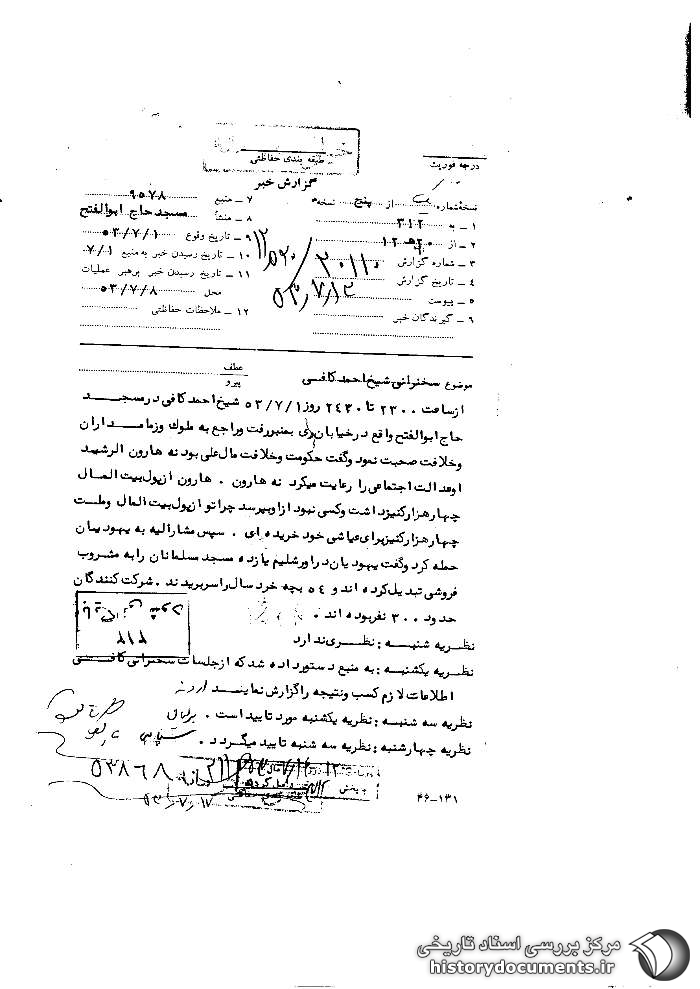 طبقه بندی حفاظتی
درجه فوریت
گزارش خبر
نسخه شماره یک از پنج نسخه
۱ ـ به ۳۱۲
۲ ـ از
۳ ـ شماره گزارش
۴ ـ تاریخ گزارش
۵ ـ پیوست
۶ ـ گیرندگان خبر
۷ ـ منبع ۹۵۷۸
۸ ـ منشأ مسجد حاج ابوالفتح
۹ ـ تاریخ وقوع ۵۳/۷/۱
۱۰ ـ تاریخ رسیدن خبر به منبع ۷/۱
۱۱ ـ تاریخ رسیدن خبر برهبر عملیات
محل ۵۳/۷/۸
۱۲ ـ ملاحظات حفاظتی
۳۰۱۱۰
۵۳/۷/۱۲
موضوع سخنرانی شیخ احمد کافی
عطف
پیرو
از ساعت ۲۳۰۰ تا ۲۴۳۰ روز ۵۳/۷/۱ شیخ احمد کافی در مسجد
حاج ابوالفتح واقع در خیابان ری بمنبر رفت و راجع به ملوک و زمامداران
و خلافت صحبت نمود و گفت حکومت و خلافت مال علی بود نه هارون الرشید
او عدالت اجتماعی را رعایت میکرد نه هارون . هارون از پول بیت المال
چهار هزار کنیز داشت و کسی نبود از او بپرسد چرا تو از پول بیت المال و ملت
چهار هزار کنیز برای عیاشی خود خریده ای . سپس مشارالیه به یهودیان
حمله کرد و گفت یهودیان در اورشلیم یازده مسجد مسلمانان را به مشروب
فروشی تبدیل کرده اند و ۵۴ بچه خرد سال را سر بریدند . شرکت کنندگان
حدود ۳۰۰ نفر بوده اند .
نظریه شنبه : نظری ندارد
نظریه یکشنبه : به منبع دستور داده شد که از جلسات سخنرانی کافی
اطلاعات لازم کسب و نتیجه را گزارش نماید
نظریه سه شنبه : نظریه یکشنبه مورد تایید است .
نظریه چهارشنبه : نظریه سه شنبه تایید میگردد .
۵۳۸۶۸
۵۳/۷/۱۷
۴۶-۱۳۱
مرکز بررسی اسناد تاریخی
historydocuments.ir